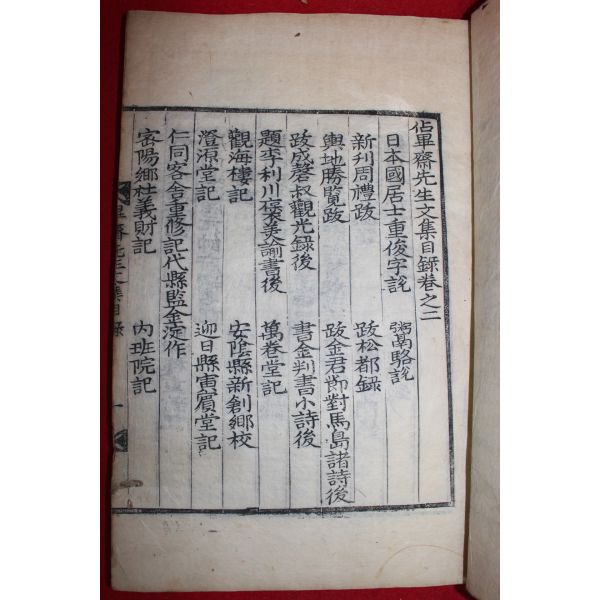 佔畢齋先生文集目錄卷之二
日本國居士重俊字說 鬻駱說
新刊周禮跋 跋松都錄
輿地勝覽跋 跋金君節對馬島諸詩後
跋成磬叔觀光錄後 書金判書小詩後
題李利川褒美諭書後 萬卷堂記
觀海樓記 安陰縣新創鄉校
澄源堂記 迎日縣寅賓堂記
仁同客舍重修記代縣監金淀作
密陽鄉社義財記 內班院記